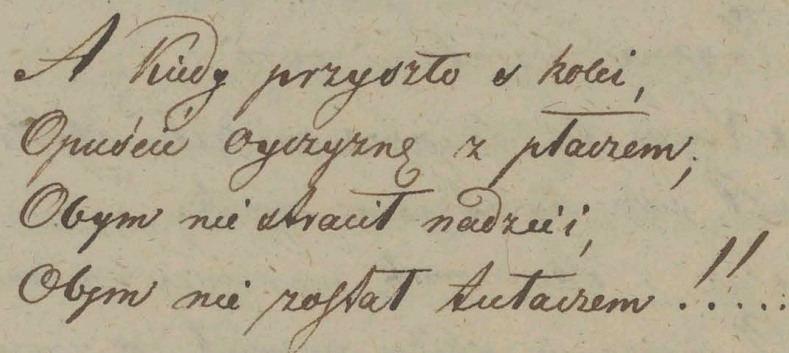 A kiedy przyszło s kolei,
Opuścić oyczyznę z płaczem;
Obym nie stracił nadzieii,
Obym nie został tułaczem!!...